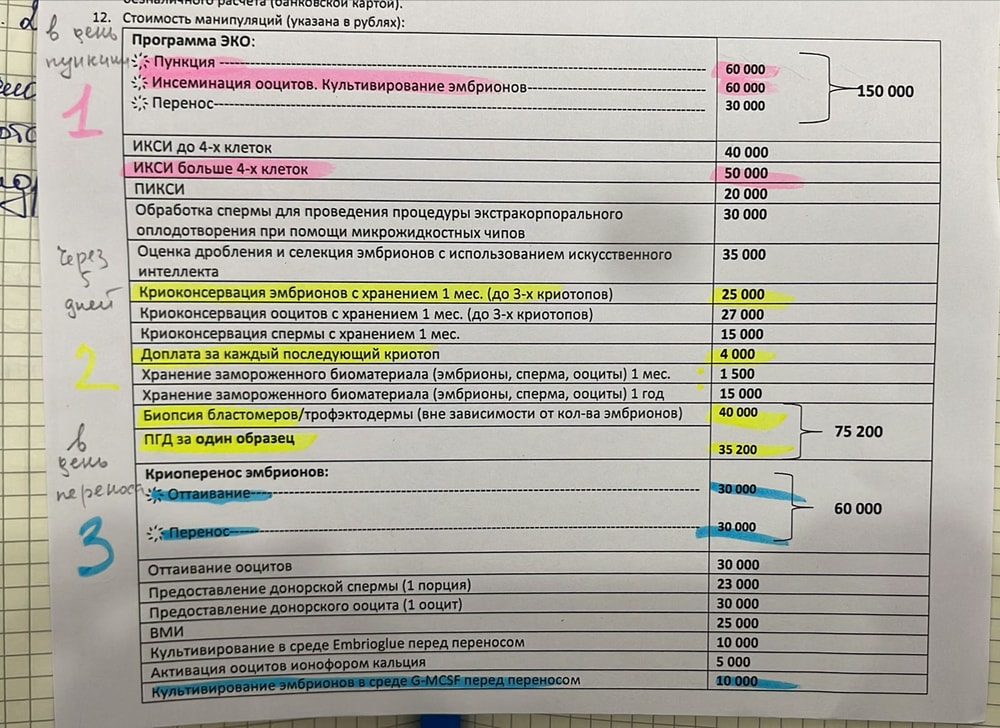 безналичного расчета (банковской картой).
12. Стоимость манипуляций (указана в рублях):
в день
пункции
1
Программа ЭКО:
Пункция 60 000
Инсеминация ооцитов. Культивирование эмбрионов 60 000
Перенос 30 000
150 000
ИКСИ до 4-х клеток 40 000
ИКСИ больше 4-х клеток 50 000
ПИКСИ 20 000
Обработка спермы для проведения процедуры экстракорпорального 30 000
оплодотворения при помощи микрожидкостных чипов
Оценка дробления и селекция эмбрионов с использованием искусственного 35 000
интеллекта
через
5
дней
2
Криоконсервация эмбрионов с хранением 1 мес. (до 3-х криотопов) 25 000
Криоконсервация ооцитов с хранением 1 мес. (до 3-х криотопов) 27 000
Криоконсервация спермы с хранением 1 мес. 15 000
Доплата за каждый последующий криотоп 4 000
Хранение замороженного биоматериала (эмбрионы, сперма, ооциты) 1 мес. 1 500
Хранение замороженного биоматериала (эмбрионы, сперма, ооциты) 1 год 15 000
Биопсия бластомеров/трофэктодермы (вне зависимости от кол-ва эмбрионов) 40 000
ПГД за один образец 35 200
75 200
в
день
переноса
3
Криоперенос эмбрионов:
Оттаивание 30 000
Перенос 30 000
60 000
Оттаивание ооцитов 30 000
Предоставление донорской спермы (1 порция) 23 000
Предоставление донорского ооцита (1 ооцит) 30 000
ВМИ 25 000
Культивирование в среде Embrioglue перед переносом 10 000
Активация ооцитов ионофором кальция 5 000
Культивирование эмбрионов в среде G-MCSF перед переносом 10 000